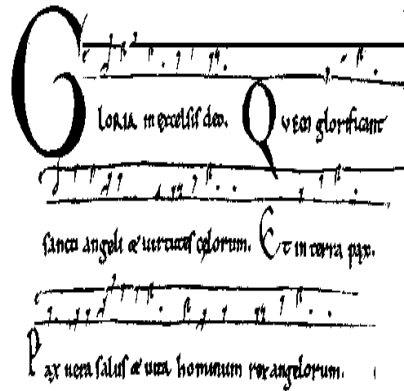 GLORIA in excelsis deo. QVEM glorificant
sancti angeli & uirtutes celorum. Et in terra pax.
Pax uera salus & uita hominum rex angelorum.